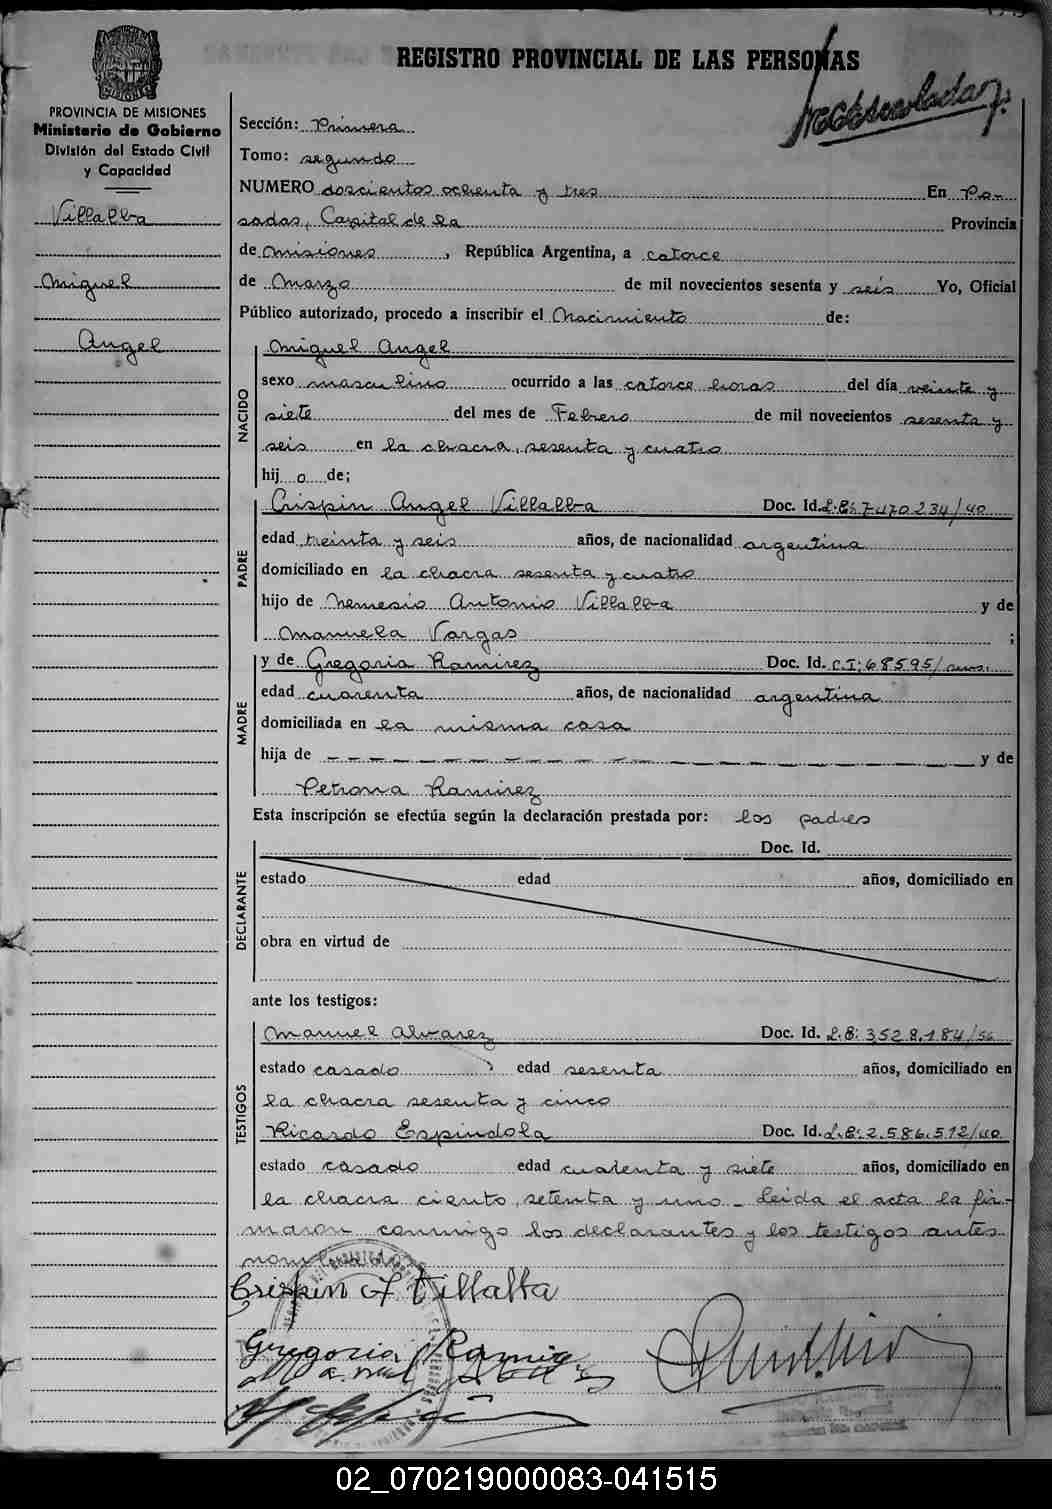 REGISTRO PROVINCIAL DE LAS PERSONAS
PROVINCIA DE MISIONES
Ministerio de Gobierno
División del Estado Civil
y Capacidad
Villalba
Miguel
Angel
Sección: Primera
Tomo: segundo
NUMERO doscientos ochenta y tres En Po-
sadas, Capital de la Provincia
de misiones, República Argentina, a catorce
de Marzo de mil novecientos sesenta y seis Yo, Oficial
Público autorizado, procedo a inscribir el Nacimiento de:
NACIDO
Miguel Angel
sexo masculino ocurrido a las catorce horas del día veinte y
siete del mes de Febrero de mil novecientos sesenta y
seis en la chacra, sesenta y cuatro
hij o de;
PADRE
Crispin Angel Villalba Doc. Id. L.E: 7.470.234/40
edad treinta y seis años, de nacionalidad argentina
domiciliado en la chacra sesenta y cuatro
hijo de Nemesio Antonio Villalba y de
Manuela Vargas ;
MADRE
y de Gregoria Ramirez Doc. Id. C.I; 68595/
edad cuarenta años, de nacionalidad argentina
domiciliada en la misma casa
hija de - - - - - - - - - - y de
Petrona Ramirez
Esta inscripción se efectúa según la declaración prestada por: los padres
DECLARANTE
Doc. Id.
estado edad años, domiciliado en
obra en virtud de
ante los testigos:
TESTIGOS
Manuel Alvarez Doc. Id. L.E: 3.528.184/56
estado casado edad sesenta años, domiciliado en
la chacra sesenta y cinco
Ricardo Espindola Doc. Id. L.E: 2.586.512/40
estado casado edad cuarenta y siete años, domiciliado en
la chacra ciento, setenta y uno - Leida el acta la fir-
maron conmigo los declarantes y los testigos antes
nombrados
Crispin A Villalba
Gregoria Ramirez
02_070219000083-041515